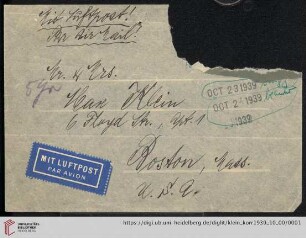 Mit Luftpost!
Per Air Mail!
Mr. & Mrs.
Max Klein
6 Floyd Str., Apt. 1
Boston, Mass.
U. S. A.
OCT 23 1939
OCT 24 1939
1939
MIT LUFTPOST
PAR AVION
UNIVERSITÄTS-
BIBLIOTHEK
HEIDELBERG
https://digi.ub.uni-heidelberg.de/diglit/klein_korr1939_10_00/0001